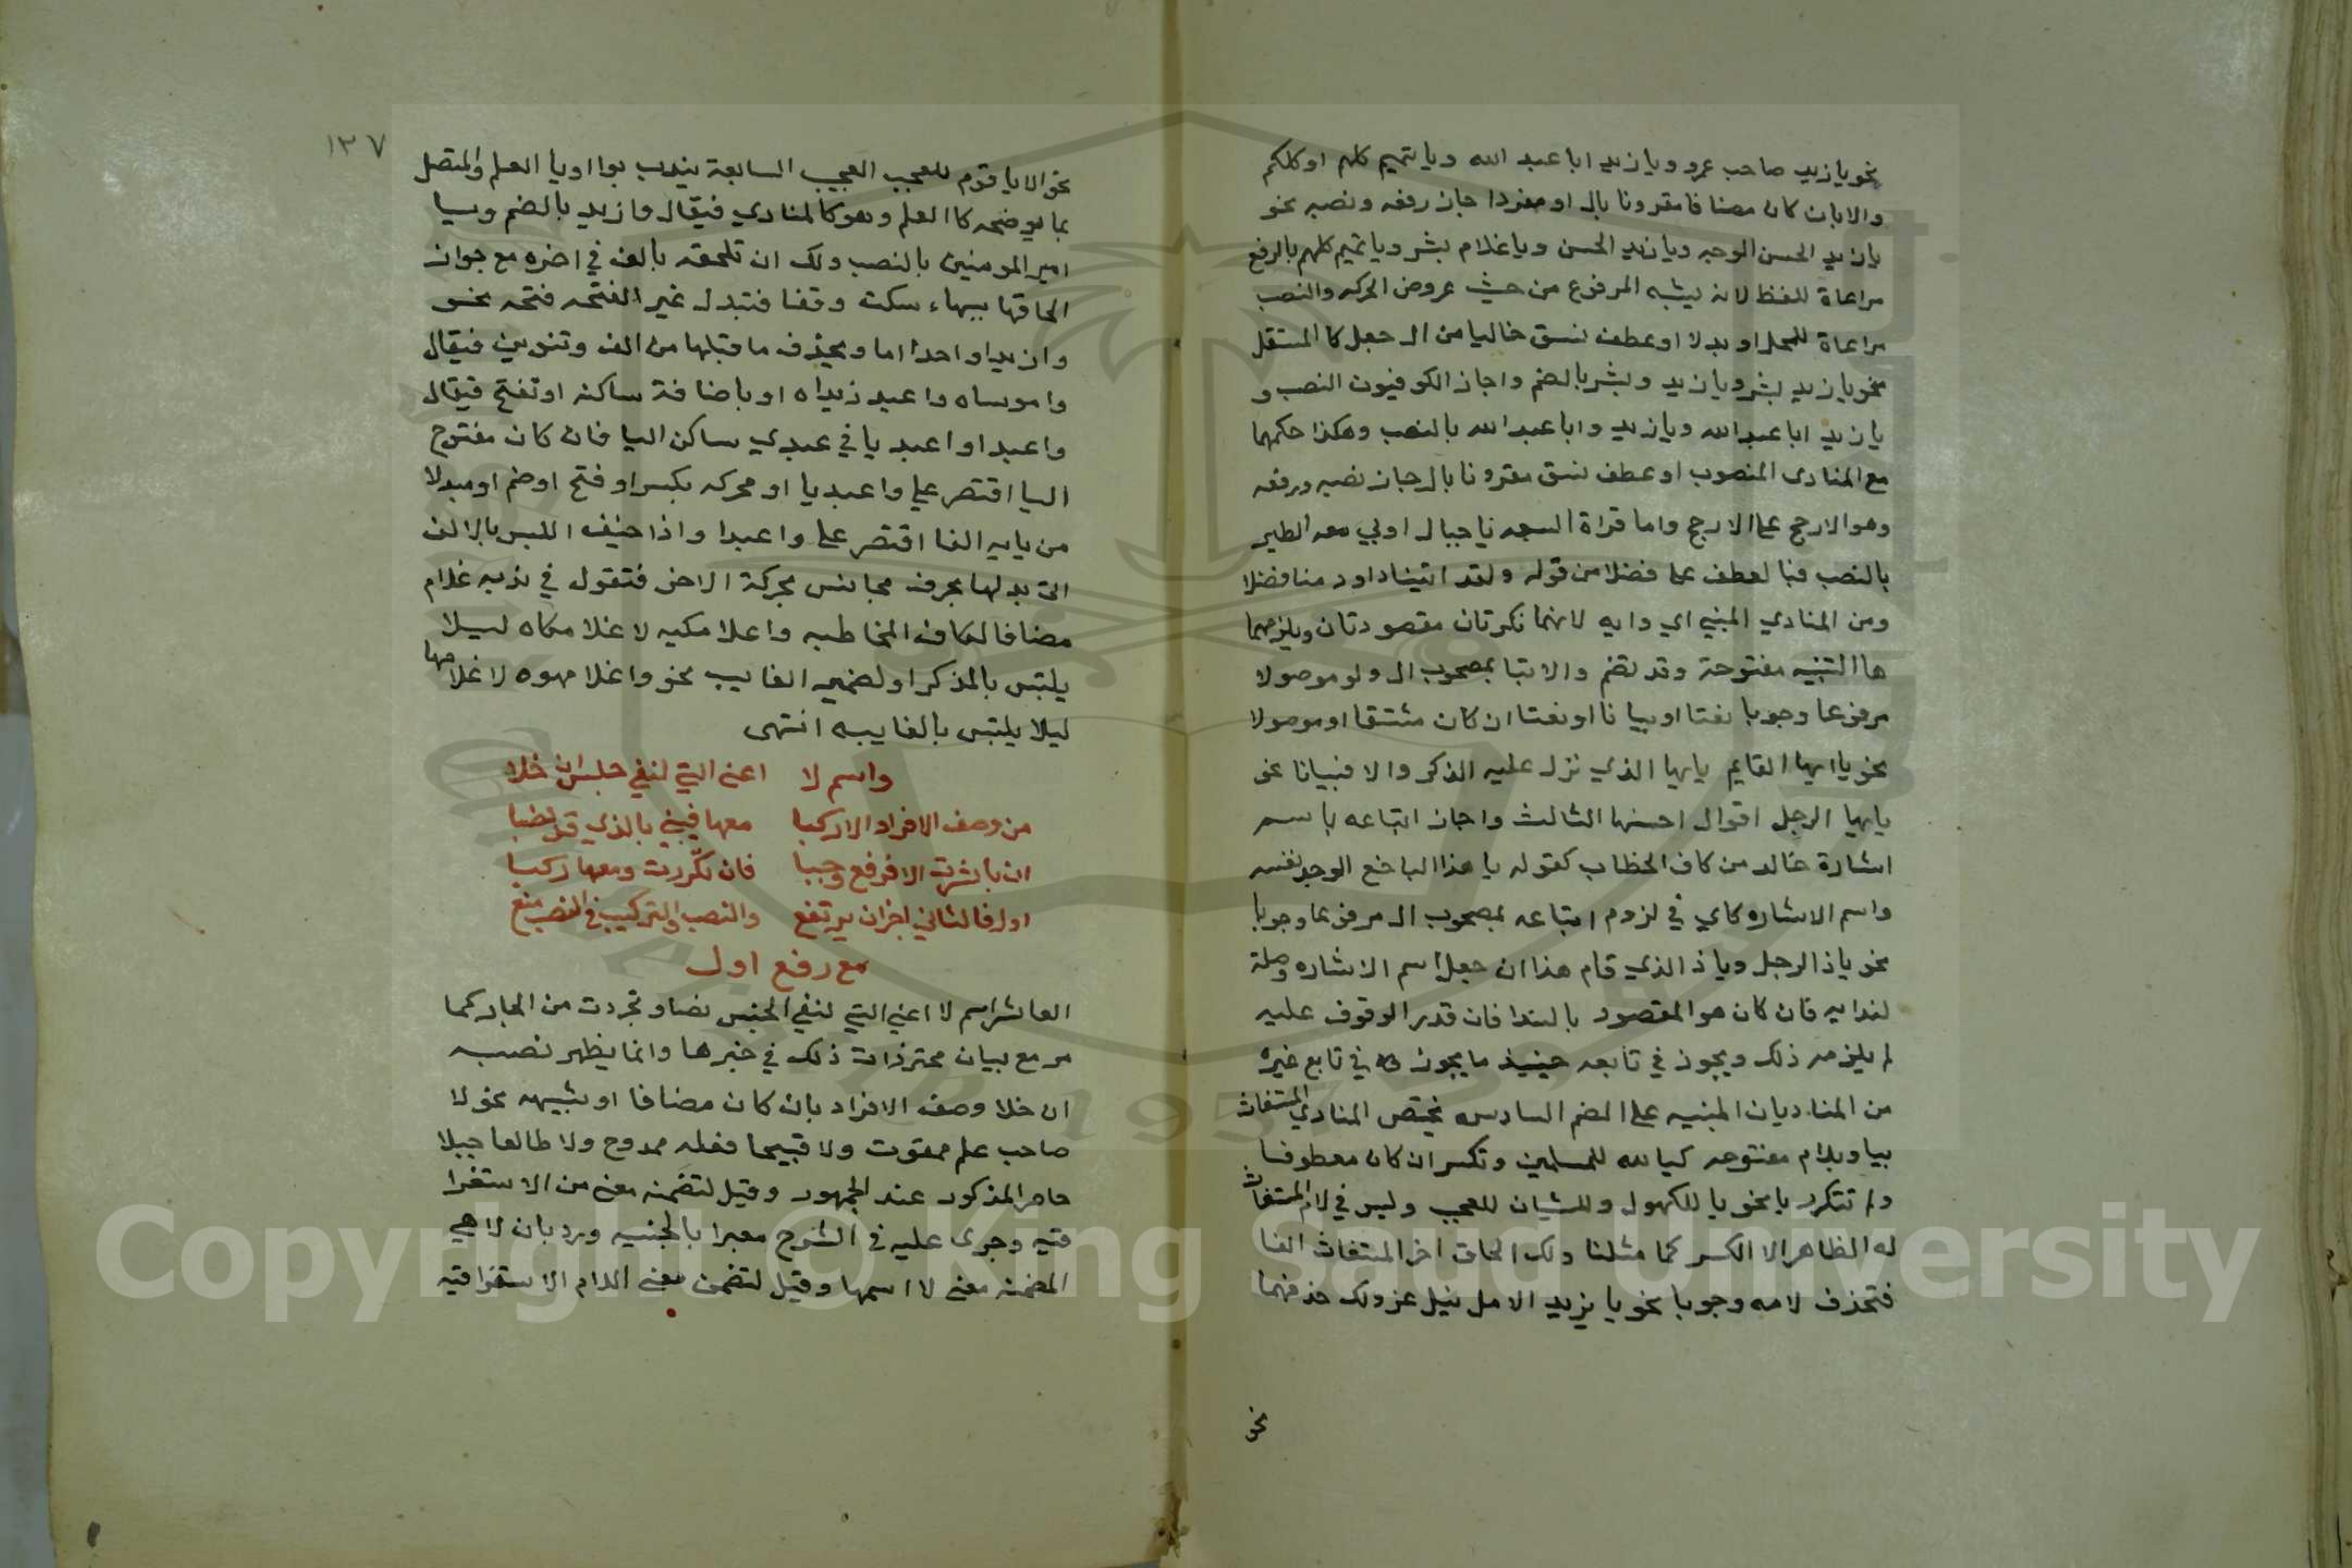 نحو يا زيد صاحب عمرو ويا زيد ابا عبد الله ويا تميم كلهم او كلكم
والا بان كان مضافا مقرونا بال او مفردا جاز رفعه ونصبه نحو
يا زيد الحسن الوجه ويا زيد الحسن ويا غلام بشر ويا تميم كلهم بالرفع
مراعاة للفظ لانه يشبه المرفوع من حيث عروض الحركه والنصب
مراعاة للمحل او بدلا او عطف نسق خاليا من ال جعل كالمستقل
نحو يا زيد بشر ويا زيد وبشر بالضم واجاز الكوفيون النصب و
يا زيد ابا عبد الله ويا زيد وابا عبد الله بالنصب وهكذا حكمهما
مع المنادى المنصوب او عطف نسق مقرونا بال جاز نصبه ورفعه
وهو الارجح على الارجح واما قراة السبعه يا جبال اوبي معه الطير
بالنصب فبالعطف على فضلا من قوله ولقد اتينا داود منا فضلا
ومن المنادي المبني اي وايه لانهما نكرتان مقصودتان ويلزمهما
ها التنبيه مفتوحة وقد تضم والاتبا بمصحوب ال ولو موصولا
مرفوعا وجوبا نعتا او بيانا او نعتا ان كان مشتقا او موصولا
نحو يا ايها القايم يايها الذي نزل عليه الذكر والا فبيانا نحو
يايها الرجل اقوال احسنها الثالث واجاز اتباعه باسم
اشارة خال من كاف الخطاب كقوله يا هذا الباخع الوجد نفسه
واسم الاشاره كاي في لزوم اتباعه بمصحوب ال مرفوعا وجوبا
نحو يا ذا الرجل ويا ذا الذي قام هذا ان جعل اسم الاشاره وصلة
لندايه فان كان هو المقصود بالندا فان قدر الوقوف عليه
لم يلزمه ذلك ويجوز في تابعه حينيذ ما يجوز في تابع غيره
من المناديان المبنيه على الضم السادس يختص المنادي المستغاث
بيا وبلام مفتوحه كيا لله للمسلمين وتكسر ان كان معطوفا
ولم تتكرر يا نحو يا للكهول وللشبان للعجب وليس في لام المستغاث
له الظاهر الا الكسر كما مثلنا ولك الحاق اخر المستغاث الفا
فتحذف لامه وجوبا نحو يا يزيدا لامل نيل عز ولك حذفهما
نحو
١٣٧
نحو الا يا قوم للعجب العجيب السابعة يندب بوا او يا العلم والمتصل
بما يوضحه كالعلم وهو كالمنادي فيقال وا زيد بالضم ويا
امير المومنين بالنصب ولك ان تلحقه بالف في اخره مع جواز
الحاقها بهاء سكت وقفا فتبدل غير الفتحه فتحه نحو
وا زيدا وا احدا اما ويحذف ما قبلها من الف وتنوين فيقال
وا موساه وا عبد زيداه او باضافة ساكنه او تفتح فيقال
وا عبدا وا عبديا في عبدي ساكن اليا فان كان مفتوح
اليا اقتصر على وا عبديا او محركه بكسر او فتح او ضم او مبدلا
من يايه الفا اقتصر على وا عبدا واذا خيف اللبس بالالف
اتى بدلها بحرف مجانس لحركة الاخر فتقول في ندبه غلام
مضافا لكاف المخاطبه واغلامكيه لا غلامكاه ليلا
يلتبس بالمذكر او لضمير الغايب نحو واغلامهوه لا غلامها
ليلا يلتبس بالغايبه انتهى
واسم لا اعني التي لنفي جلس ان خلا
من وصف الافراد الا ركبا معها فبني بالذي قد نصبا
ان باشرت الا فرفع وجبا فان تكررت ومعها ركبا
اول فالثاني اجز ان يرتفع والنصب والتركيب في النصب منع
مع رفع اول
العاشر اسم لا اعني التي لنفي الجنس نصا وتجردت من الجار كما
مر مع بيان محترزات ذلك في خبرها وانما يظهر نصبه
ان خلا وصف الافراد بان كان مضافا او شبيهه نحو لا
صاحب علم ممقوت ولا قبيحا فعله ممدوح ولا طالعا جبلا
حاصر المذكور عند الجمهور وقيل لتضمنه معنى من الاستغرا
قيه وجرى عليه في الشرح معبرا بالجنسيه ورد بان لا هي
المضمنه معنى لا اسمها وقيل لتضمن معنى اللام الاستغراقيه
Copyright © King Saud University